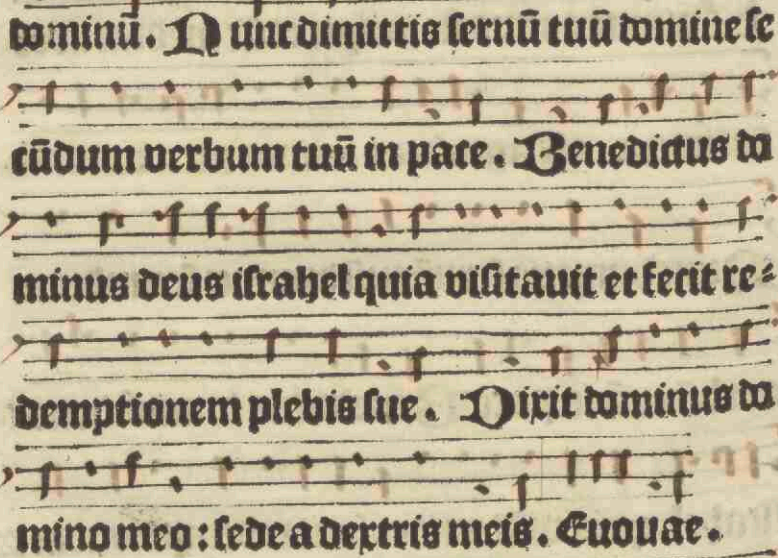 dominū. Nunc dimittis seruū tuū domine se
cūdum verbum tuū in pace. Benedictus do
minus deus israhel quia visitauit et fecit re⸗
demptionem plebis sue. Dixit dominus do
mino meo: sede a dextris meis. Euouae.